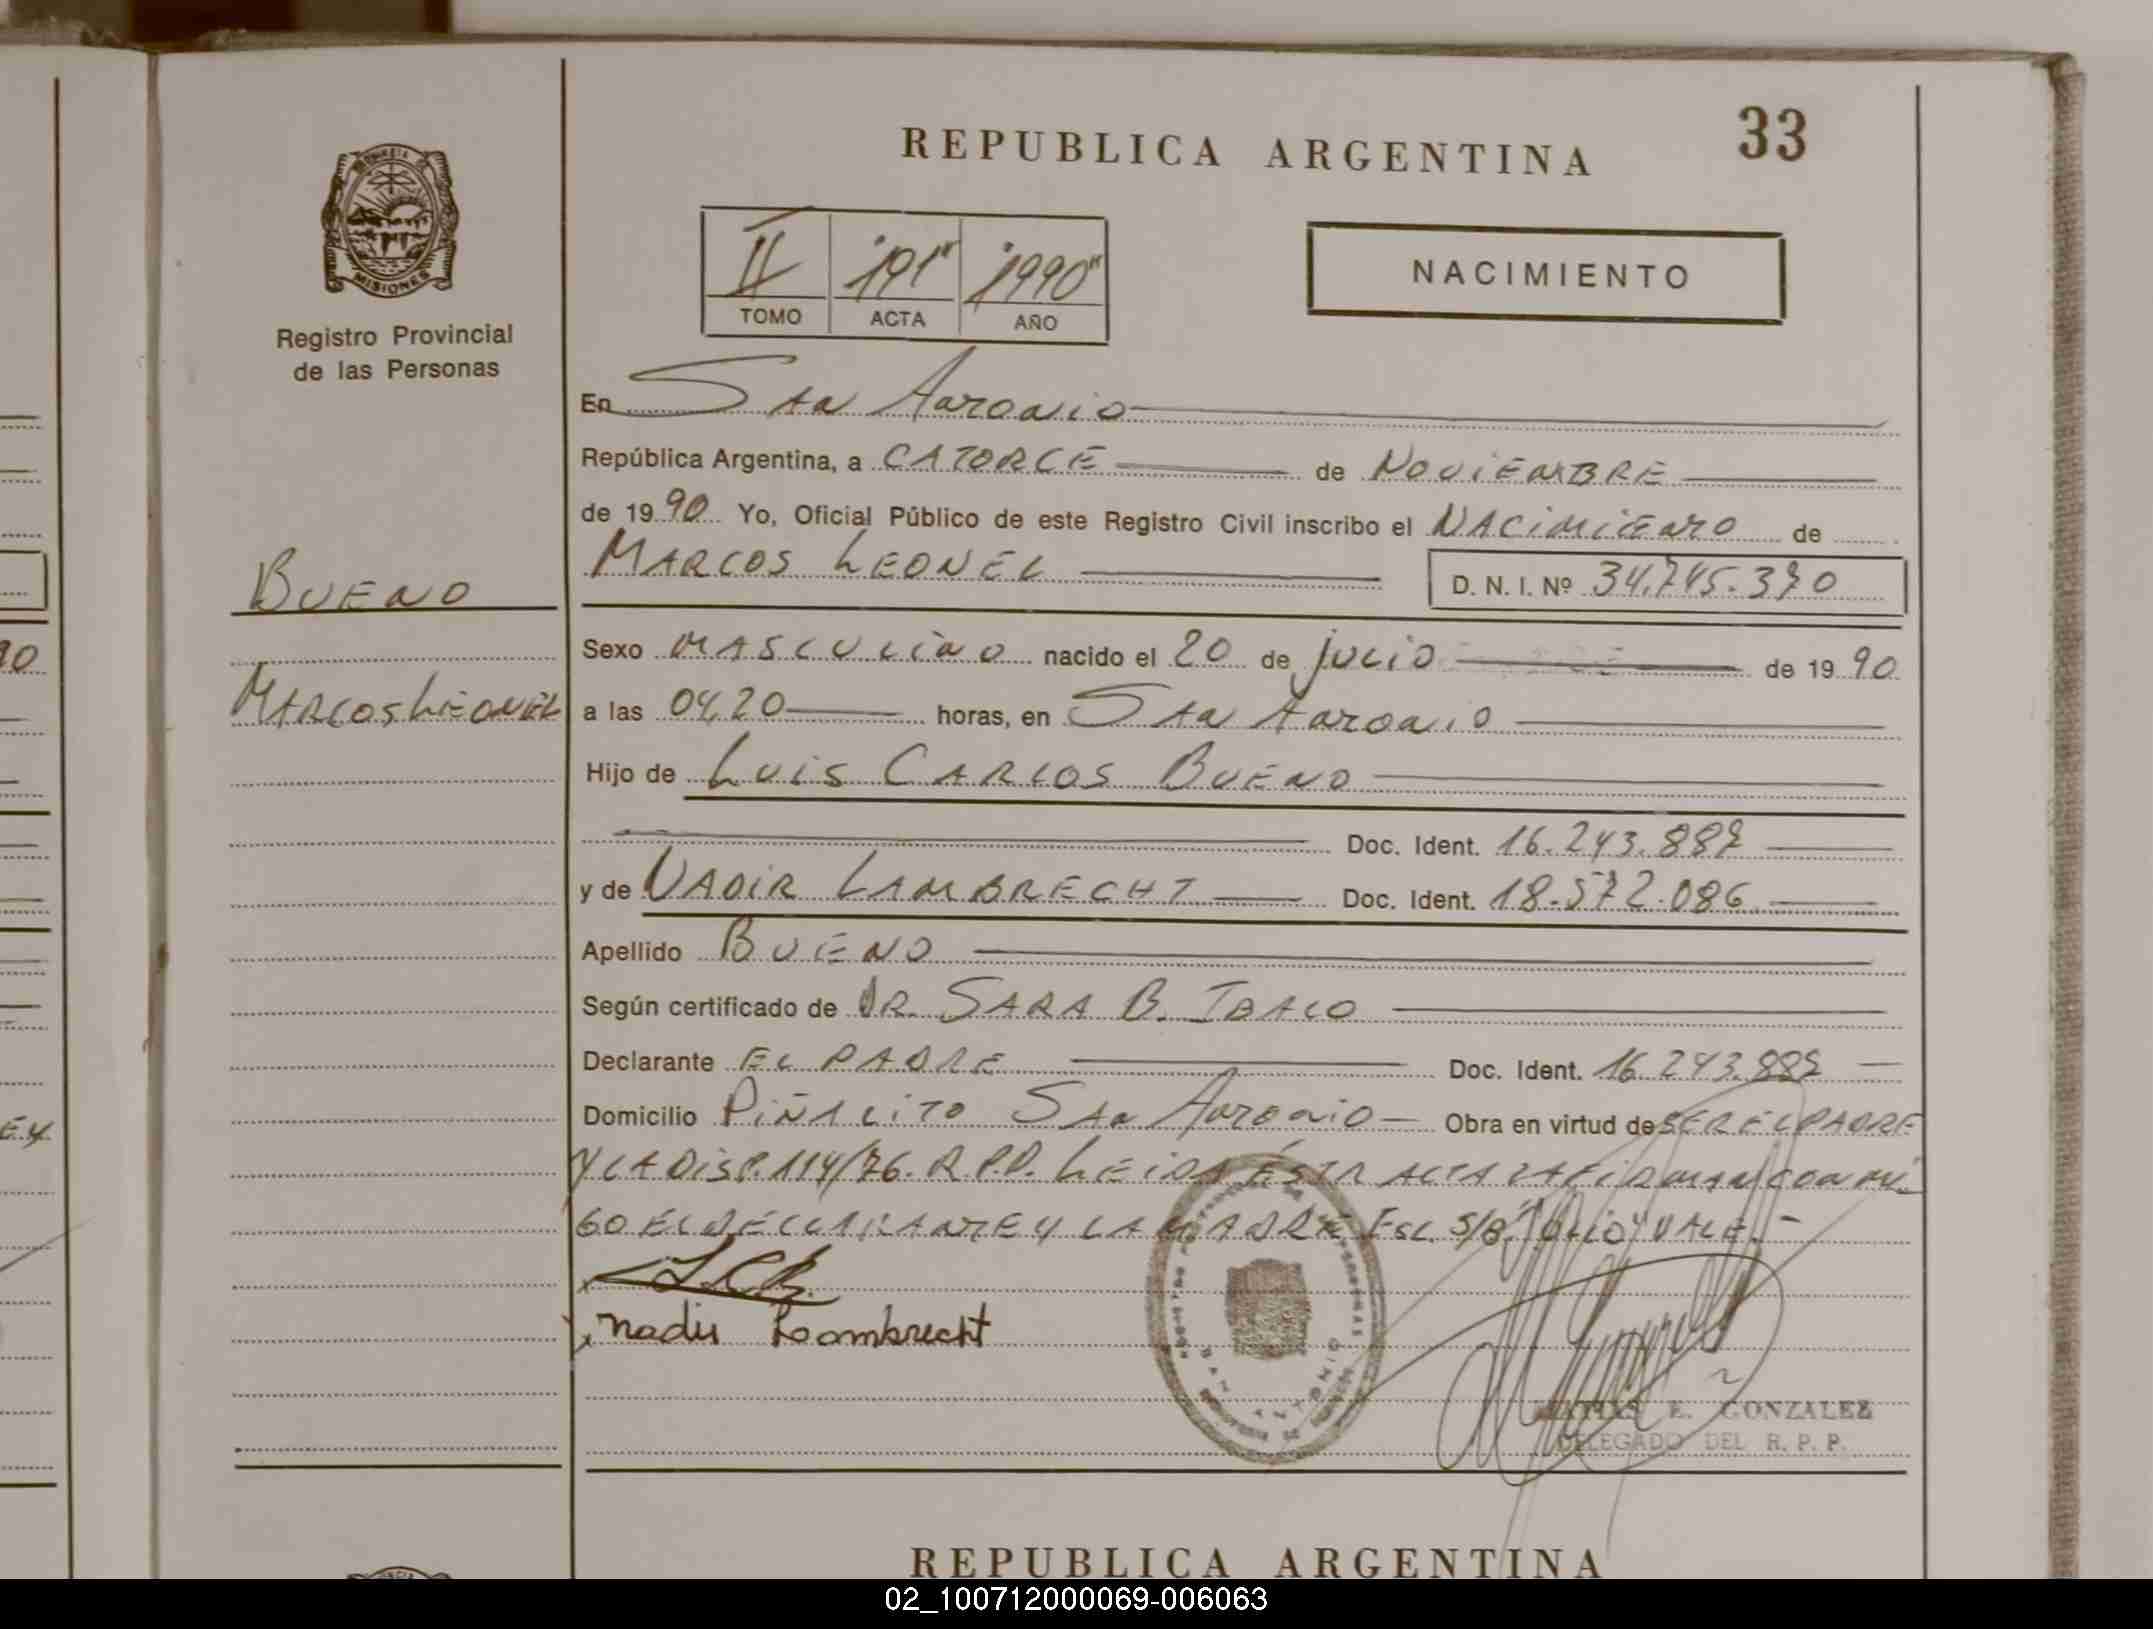 REPUBLICA ARGENTINA
33
II "191" "1990"
TOMO ACTA AÑO
NACIMIENTO
MISIONES
Registro Provincial
de las Personas
BUENO
MARCOS LEONEL
En SAN ANTONIO
República Argentina, a CATORCE de NOVIEMBRE
de 1990 Yo, Oficial Público de este Registro Civil inscribo el NACIMIENTO de
MARCOS LEONEL D. N. I. Nº 34.745.370
Sexo MASCULINO nacido el 20 de JULIO de 1990
a las 04,20 horas, en SAN ANTONIO
Hijo de LUIS CARLOS BUENO
Doc. Ident. 16.243.887
y de NADIR LAMBRECHT Doc. Ident. 18.572.086
Apellido BUENO
Según certificado de DR. SARA B.
Declarante EL PADRE Doc. Ident. 16.243.887
Domicilio PIÑALITO SAN ANTONIO Obra en virtud de SER EL PADRE
Y LA DISP. 114/76. R.P.P. LEIDA ÉSTA ACTA LA FIRMAN CONMI
GO EL DECLARANTE Y LA MADRE ESC. S/B "JULIO" VALE.-
L.C.B.
Nadir Lambrecht
E. GONZALEZ
DELEGADO DEL R. P. P.
REPUBLICA ARGENTINA
02_100712000069-006063